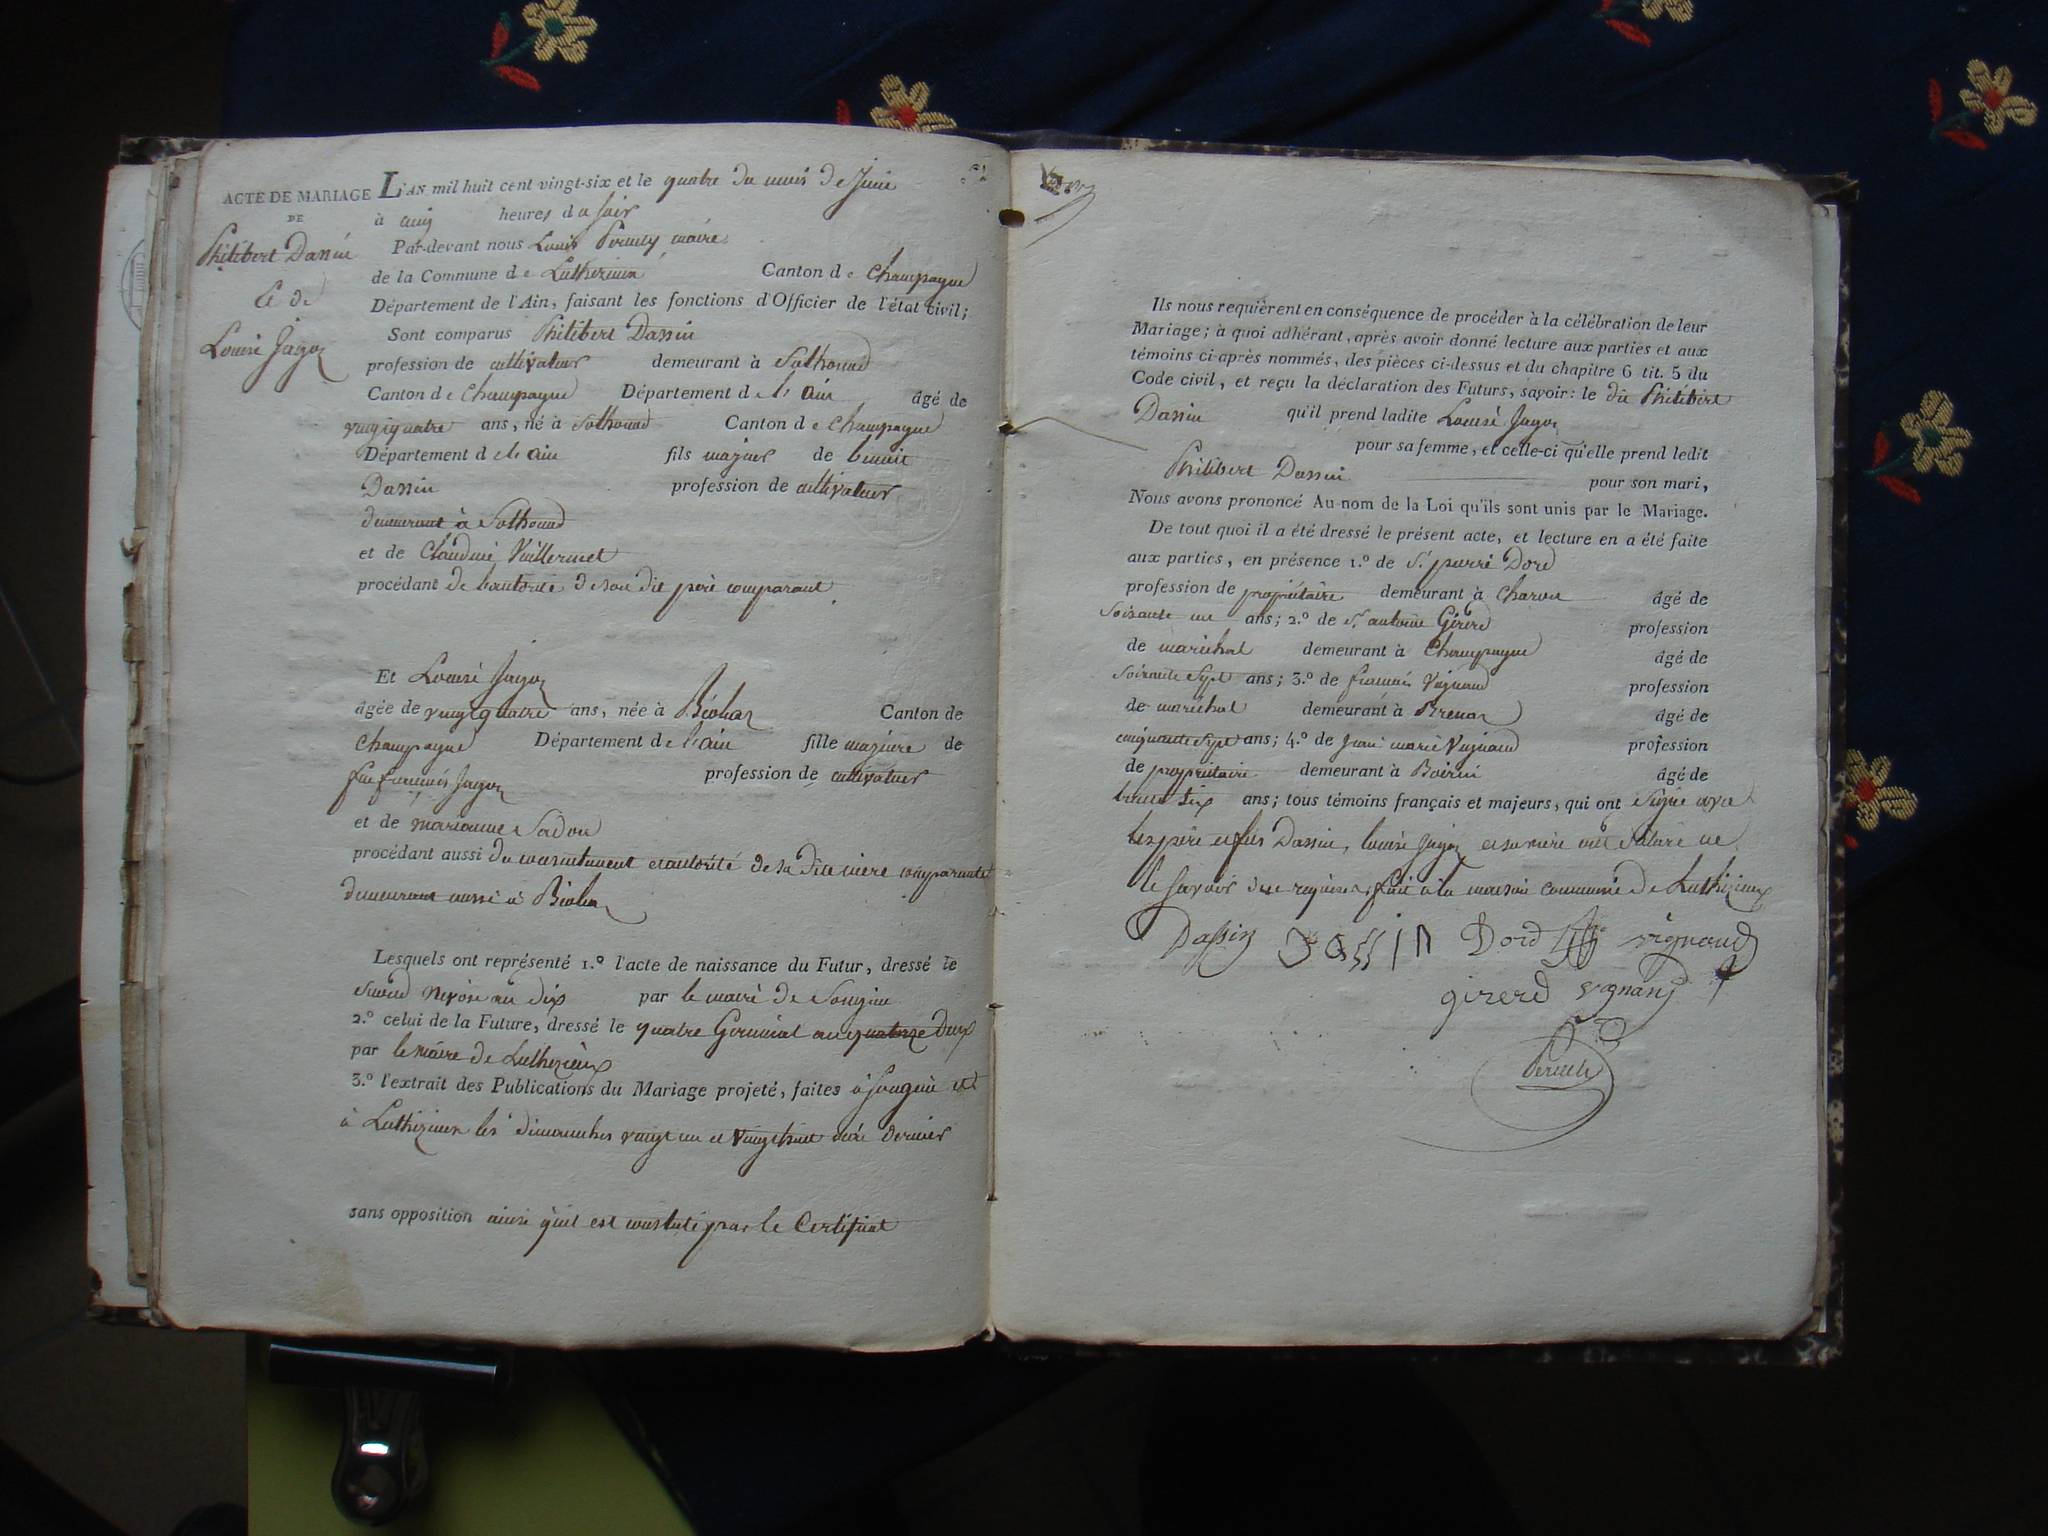 ACTE DE MARIAGE
DE
Philibert Dassin
Et de
Louise Jagoz
L'AN mil huit cent vingt-six et le quatre du mois de Juin
à cinq heures du soir
Par-devant nous Louis maire
de la Commune de Luthezieux Canton de Champagne
Département de l'Ain, faisant les fonctions d'Officier de l'état civil;
Sont comparus Philibert Dassin
profession de cultivateur demeurant à Sothonod
Canton de Champagne Département de l'ain âgé de
vingtquatre ans, né à Sothonod Canton de Champagne
Département de l'ain fils majeur de benoit
Dassin profession de cultivateur
demeurant à Sothonod
et de Claudine Vuillermet
procédant de l'autorité de son dit père comparant
Et Louise Jagoz
âgée de vingtquatre ans, née à Bioleaz Canton de
Champagne Département de l'ain fille majeure de
feu françois Jagoz profession de cultivateur
et de marianne
procédant aussi du consentement et autorité de sa dite mère comparante
demeurant aussi à Bioleaz
Lesquels ont représenté 1.º l'acte de naissance du Futur, dressé le
second Nivose an dix par le maire de Songieu
2.º celui de la Future, dressé le quatre Germinal an quatorze dix
par le maire de Luthezieux
3.º l'extrait des Publications du Mariage projeté, faites à Songieu et
à Luthezieux les dimanches vingt un et vingthuit mai dernier
sans opposition ainsi qu'il est constaté par le Certificat
Ils nous requièrent en conséquence de procéder à la célébration de leur
Mariage; à quoi adhérant, après avoir donné lecture aux parties et aux
témoins ci-après nommés, des pièces ci-dessus et du chapitre 6 tit. 5 du
Code civil, et reçu la déclaration des Futurs, savoir: le dit Philibert
Dassin qu'il prend ladite Louise Jagoz
pour sa femme, et celle-ci qu'elle prend ledit
Philibert Dassin pour son mari,
Nous avons prononcé Au nom de la Loi qu'ils sont unis par le Mariage.
De tout quoi il a été dressé le présent acte, et lecture en a été faite
aux parties, en présence 1.º de Sr pierre Dord
profession de propriétaire demeurant à Charon âgé de
soixante un ans; 2.º de Sr antoine Gérerd profession
de maréchal demeurant à Champagne âgé de
soixante sept ans; 3.º de francois Vignand profession
de maréchal demeurant à Brenaz âgé de
cinquante sept ans; 4.º de Jean marie Vignand profession
de propriétaire demeurant à âgé de
trente six ans; tous témoins français et majeurs, qui ont signé avec
les père et fils Dassin, louise Jagoz et sa mère ont déclaré ne
le savoir de ce requises, fait à la maison commune de Luthezieux
Dassin Dassin Dord Vignand
girerd vignand